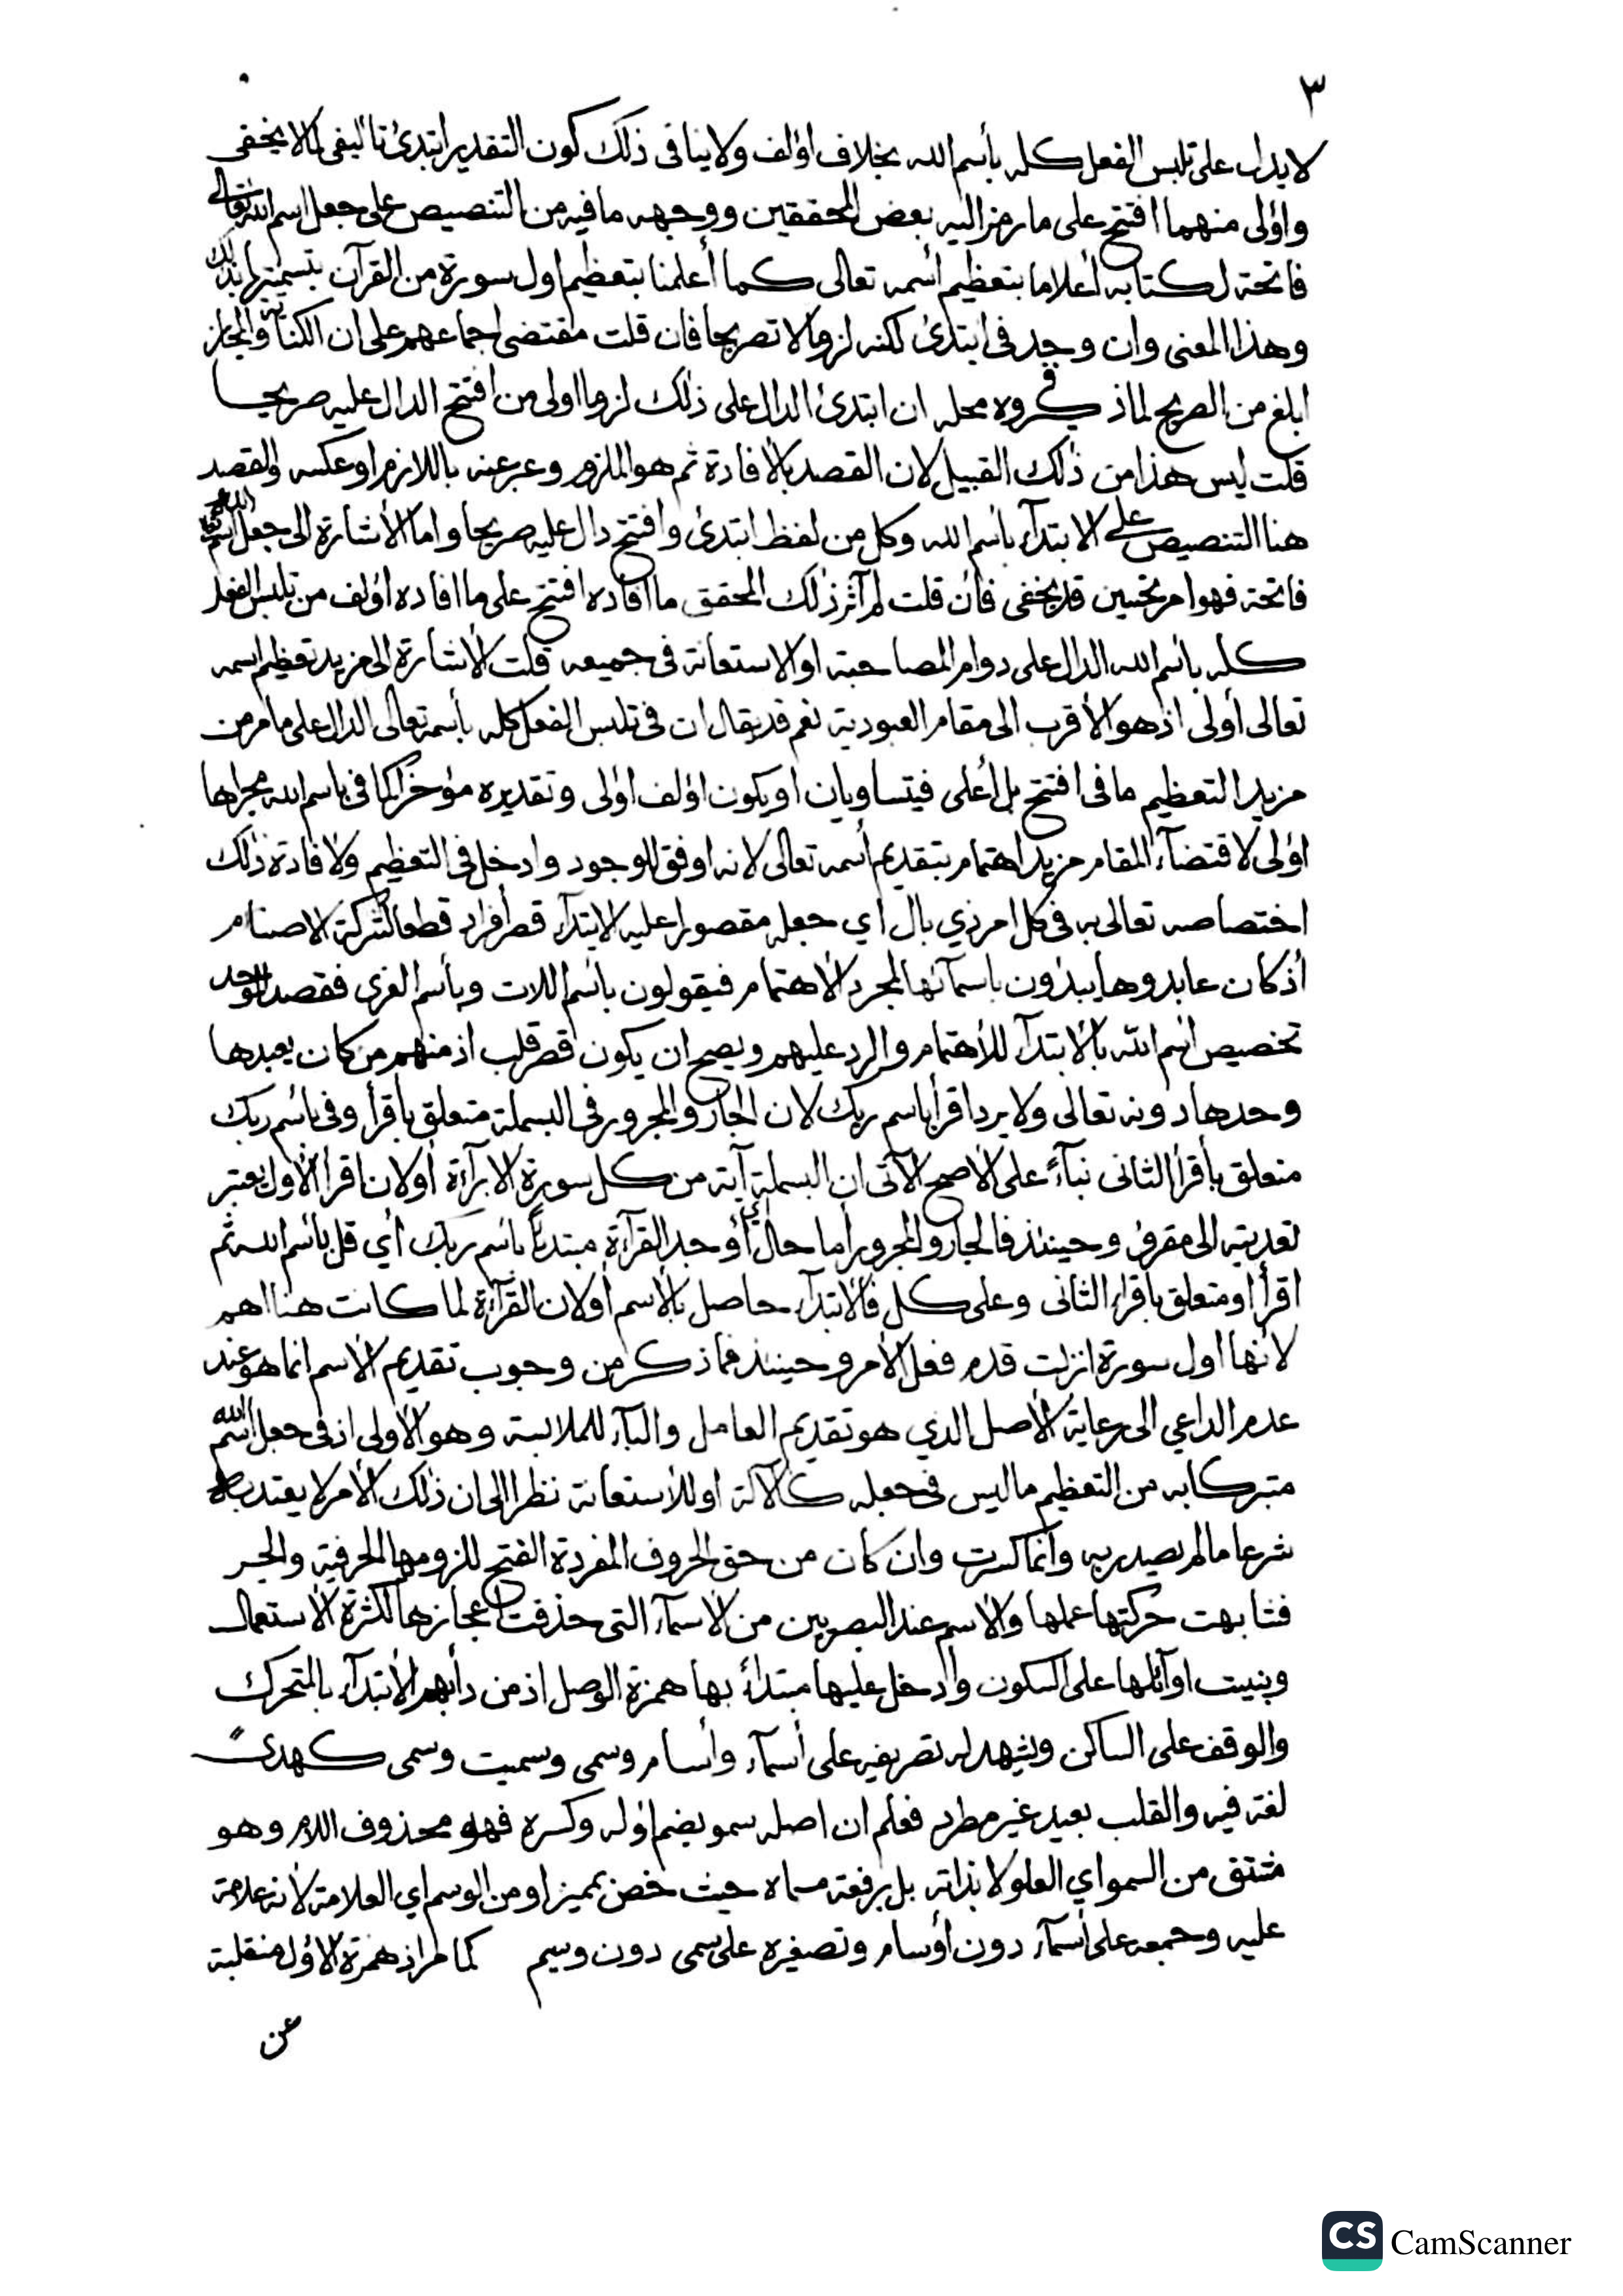 ٣
لا يدل على تلبس الفعل كله بأسم الله بخلاف اؤلف ولا ينافى ذلك كون التقدير ابتدئ تاليفى لما لا يخفى
واؤلى منهما افتتح على ما رمز اليه بعض المحققين ووجهه ما فيه من التنصيص على جعل اسم الله تعالى
فاتحة لكتابه أعلاما بتعظيم أسمه تعالى كما أعلمنا بتعظيم اول سورة من القرآن بتسميتها بذلك
وهذا المعنى وان وجد فى ابتدئ لكنه لزوما لا تصريحا فان قلت مقتضى اجماعهم على ان الكناية والمجاز
ابلغ من الصريح لما ذكروه فى محله ان ابتدئ الدال على ذلك لزوما اولى من افتتح الدال عليه صريحا
قلت ليس هذا من ذلك القبيل لان القصد بالأفادة ثم هو الملزوم وعبر عنه باللازم او عكسه والقصد
هنا التنصيص على الابتدآء بأسم الله وكل من لفظ ابتدئ وافتتح دال عليه صريحا واما الأشارة الى جعل اسم الله تعالى
فاتحة فهو امر تحسين قد يخفى فأن قلت لم آثر ذلك المحقق ما افاده افتتح على ما افاده اؤلف من تلبس الفعل
كله بأسم الله الدال على دوام المصاحبة او الاستعانة فى جميعه قلت الأشارة الى مزيد تعظيم اسمه
تعالى أولى اذ هو الأقرب الى مقام العبودية نعم قد يقال ان فى تلبس الفعل كله بأسمه تعالى الدال على ما مر من
مزيد التعظيم ما فى افتتح بل أعلى فيتساويان او يكون اؤلف اؤلى وتقديره مؤخرا كما فى باسم الله مجراها
اؤلى لاقتضآء المقام مزيد اهتمام بتقديم أسمه تعالى لانه اوفق للوجود وادخل فى التعظيم ولافادة ذلك
اختصاصه تعالى به فى كل امر ذي بال اي جعله مقصورا عليه الابتدآء قصر أفراد قطعا لشركة الاصنام
أذ كان عابدوها يبدؤن باسمآئها لمجرد الأهتمام فيقولون بأسم اللات وبأسم العزى فقصد الموحد
تخصيص اسم الله بالأبتدآء للأهتمام والرد عليهم ويصح ان يكون قصر قلب اذ منهم من كان يعبدها
وحدها دونه تعالى ولا يرد اقرأ باسم ربك لان الجار والمجرور فى البسملة متعلق باقرأ وفى بأسم ربك
متعلق بأقرأ الثانى بنآءً على الأصح الآتى ان البسملة آية من كل سورة الا برآءة أولان اقرأ الأول يعتبر
تعديته الى مقروء وحينئذ فالجار والمجرور أما حال أي أوجد القرآءة مبتدئاً بأسم ربك أي قل بأسم الله ثم
اقرأ او متعلق باقراء الثانى وعلى كل فالابتدآء حاصل بالأسم أولان القرآءة لما كانت هنا اهم
لأنها اول سورة انزلت قدم فعل الأمر وحينئذ فما ذكر من وجوب تقديم الأسم انما هو عند
عدم الداعي الى رعاية الأصل الذي هو تقديم العامل والبآء للملابسة وهو الأولى اذ فى جعل اسم الله
متبركا به من التعظيم ما ليس فى جعله كالآلة او للأستعانة نظرا الى ان ذلك الأمر لا يعتد به
شرعا ما لم يصدر به وأنما كسرت وان كان من حق الحروف المفردة الفتح للزومها الحرفية والجر
فشابهت حركتها عملها والاسم عند البصريين من الأسمآء التى حذفت أعجازها لكثرة الأستعمال
وبنيت اوآئلها على السكون وأدخل عليها مبتدأً بها همزة الوصل اذ من دأبهم الأبتدآء بالمتحرك
والوقف على الساكن ويشهد له تصريفه على أسمآء وأسام وسمى وسميت وسمى كهدىً
لغة فيه والقلب بعيد غير مطرد فعلم ان اصله سمو بضم اؤله وكسره فهو محذوف اللام وهو
مشتق من السمو اي العلو لا بذاته بل برفعة مسماه حيث خص بمميز او من الوسم اي العلامة لأنه علامة
عليه وجمعه على أسمآء دون أوسام وتصغيره على سمى دون وسيم كما مر اذ همزة الاؤل منقلبة
عن
CS CamScanner